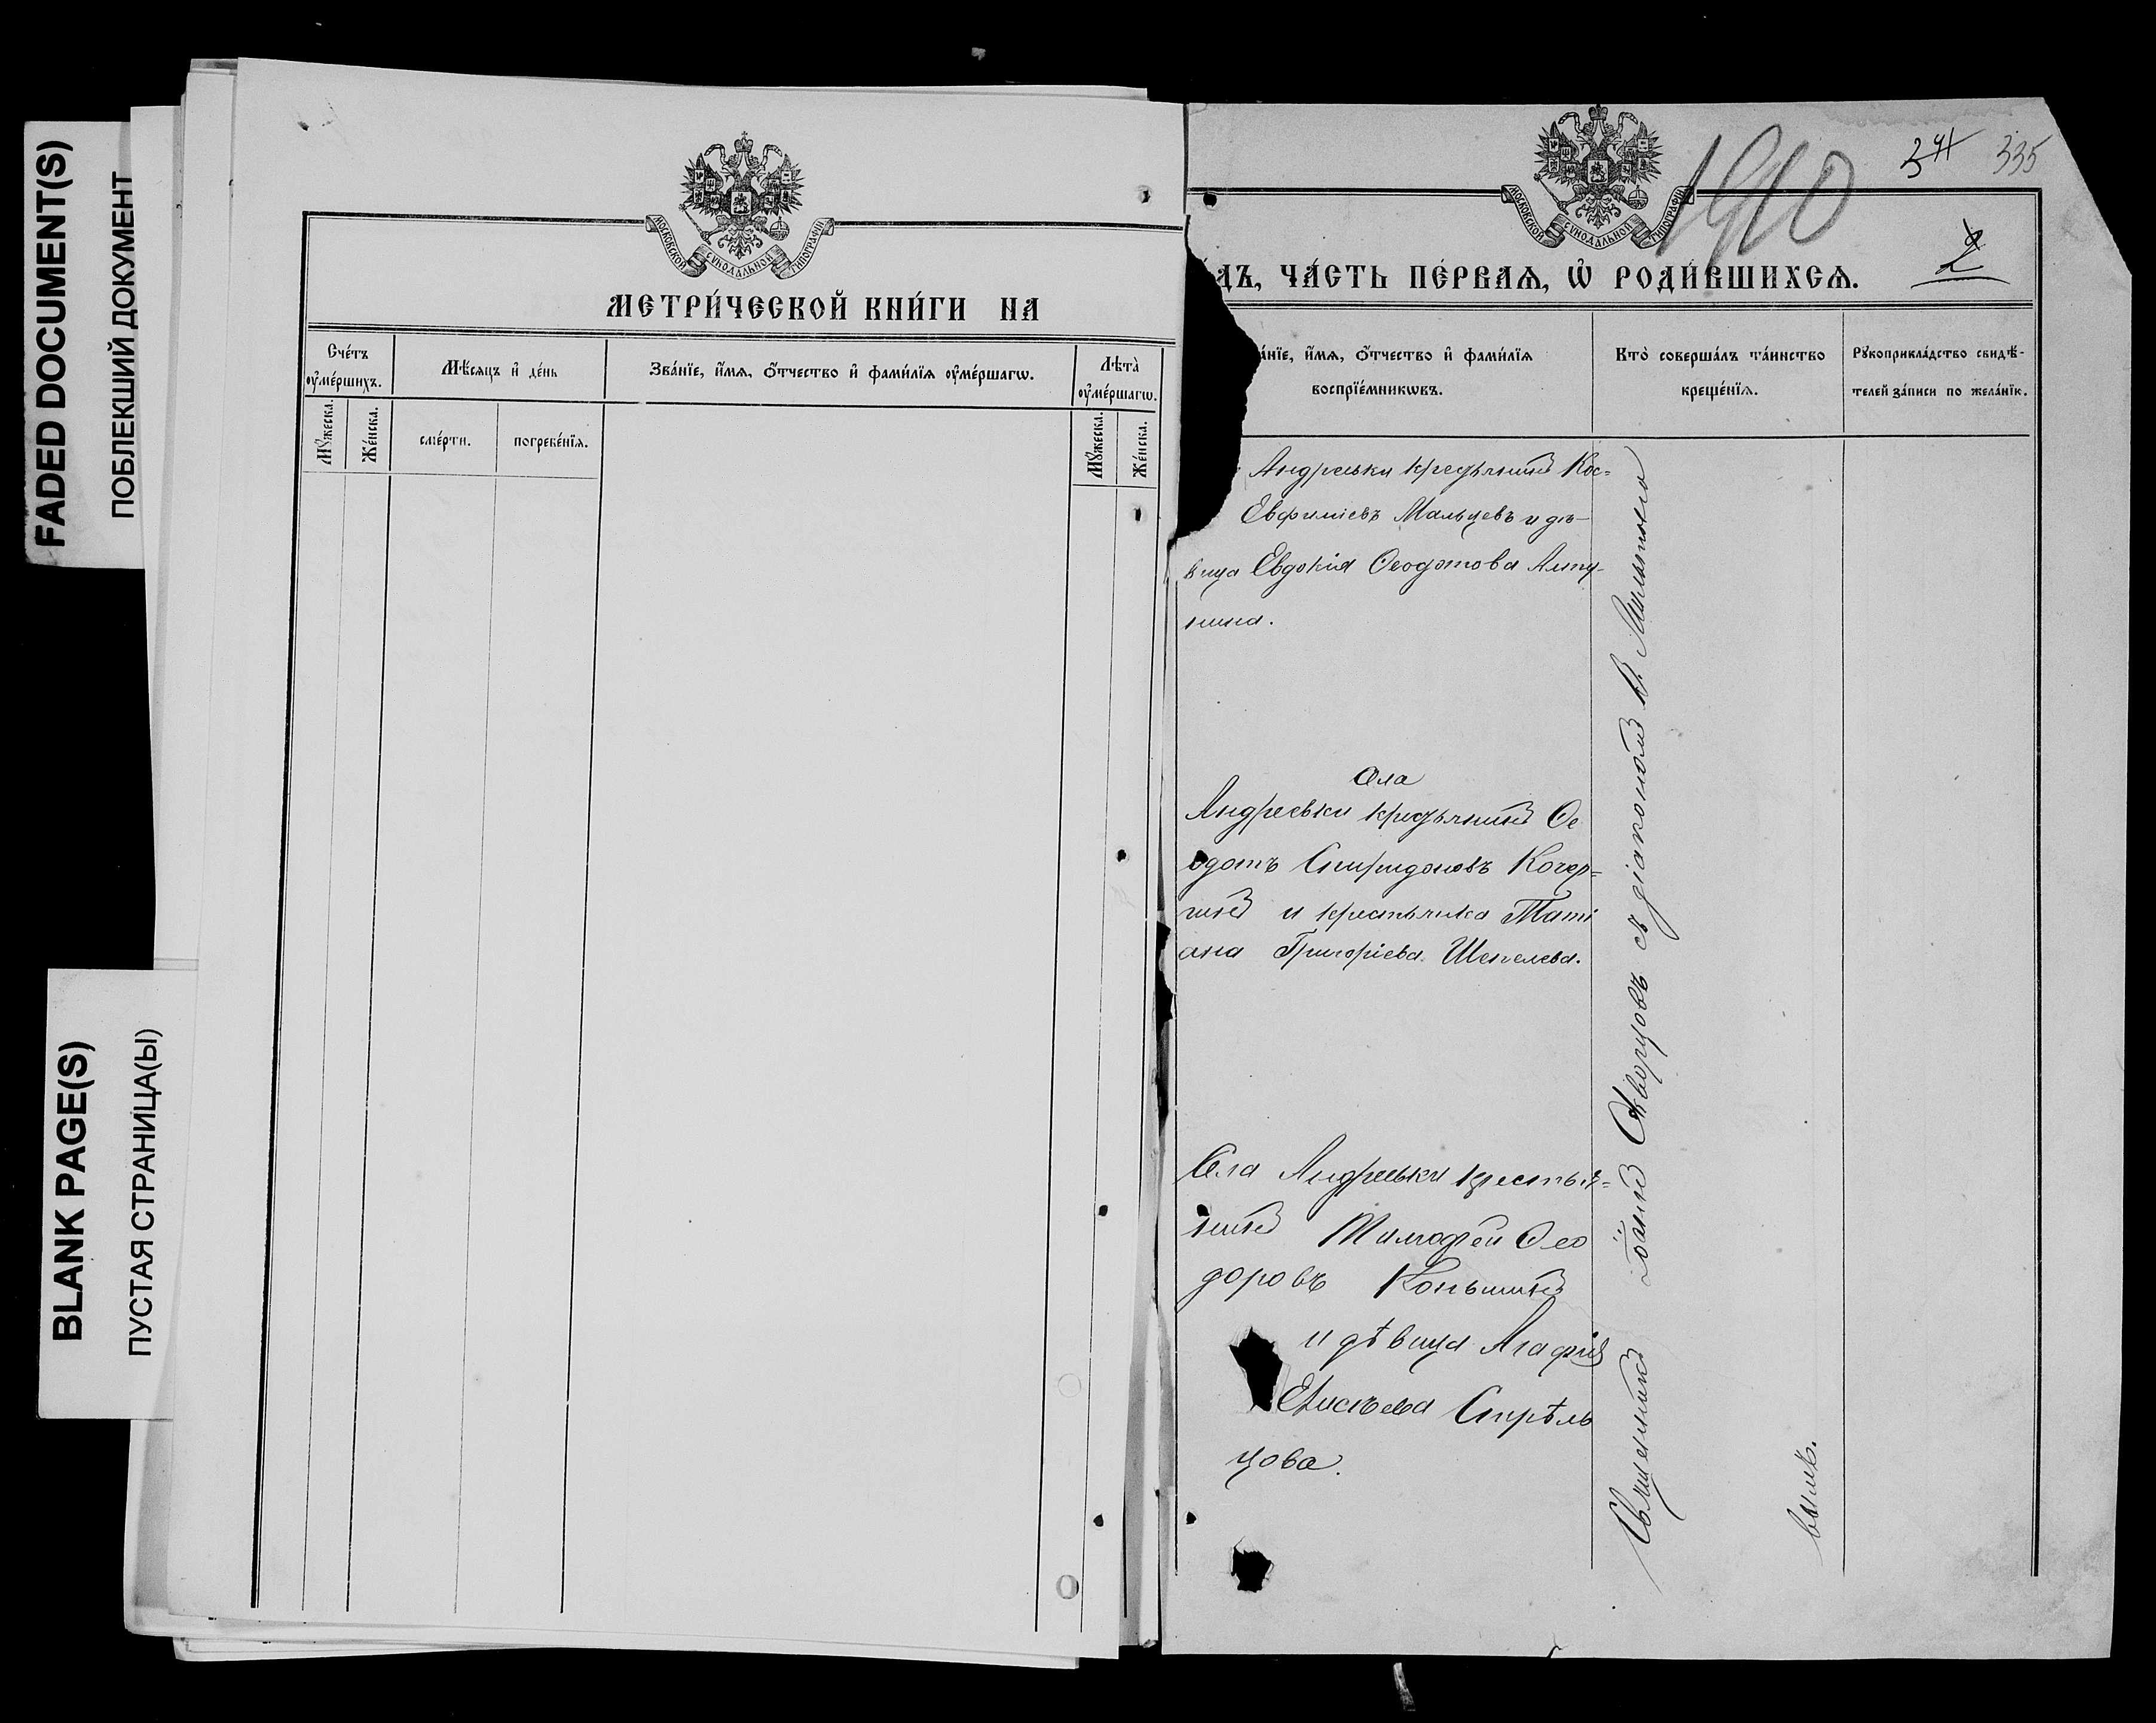 FADED DOCUMENT(S)
ПОБЛЕКШИЙ ДОКУМЕНТ
BLANK PAGE(S)
ПУСТАЯ СТРАНИЦА(Ы)
МОСКОВСКОЙ СѴНОДАЛЬНОЙ ТИПОГРАФІИ
МЕТРИ́ЧЕСКОЙ КНИ́ГИ НА
Сче́тъ ᲂу҆ме́ршихъ.
Мѣ́сяцъ и҆ де́нь
Зва́нїе, и҆́мѧ, ѻ҆́тчество и҆ фами́лїѧ ᲂу҆ме́ршагѡ.
Лѣта̀ ᲂу҆ме́ршагѡ.
Мꙋ́жеска.
Же́нска.
сме́рти.
погребе́нїѧ.
Мꙋ́жеска.
Же́нска.
МОСКОВСКОЙ СѴНОДАЛЬНОЙ ТИПОГРАФІИ
1910
341 335
2
ДЪ, ЧА́СТЬ ПЕ́РВАѦ, Ѽ РОДИ́ВШИХСѦ.
а́нїе, и҆́мѧ, ѻ҆́тчество и҆ фами́лїѧ
воспрїе́мникѡвъ.
Кто̀ соверша́лъ та́инство
креще́нїѧ.
Рꙋкоприкла́дство свидѣ́-
телей за́писи по жела́нїю.
Андреевки крестьянинъ Кос=
Евфиміевъ Мальцевъ и дѣ-
вица Евдокія Ѳеодотова Алту-
нина.
Села
Андреевки крестьянинъ Ѳе
одотъ Спиридоновъ Кочер=
гинъ и крестьянка Таті
ана Григоріева Шепелева.
Села Андреевки крестья=
нинъ Тимоѳей Ѳео
доровъ Коньшинъ
и дѣвица Агафія
Елисѣева Стрѣль
цова.
Священникъ Іоаннъ Скворцовъ съ діакономъ В.